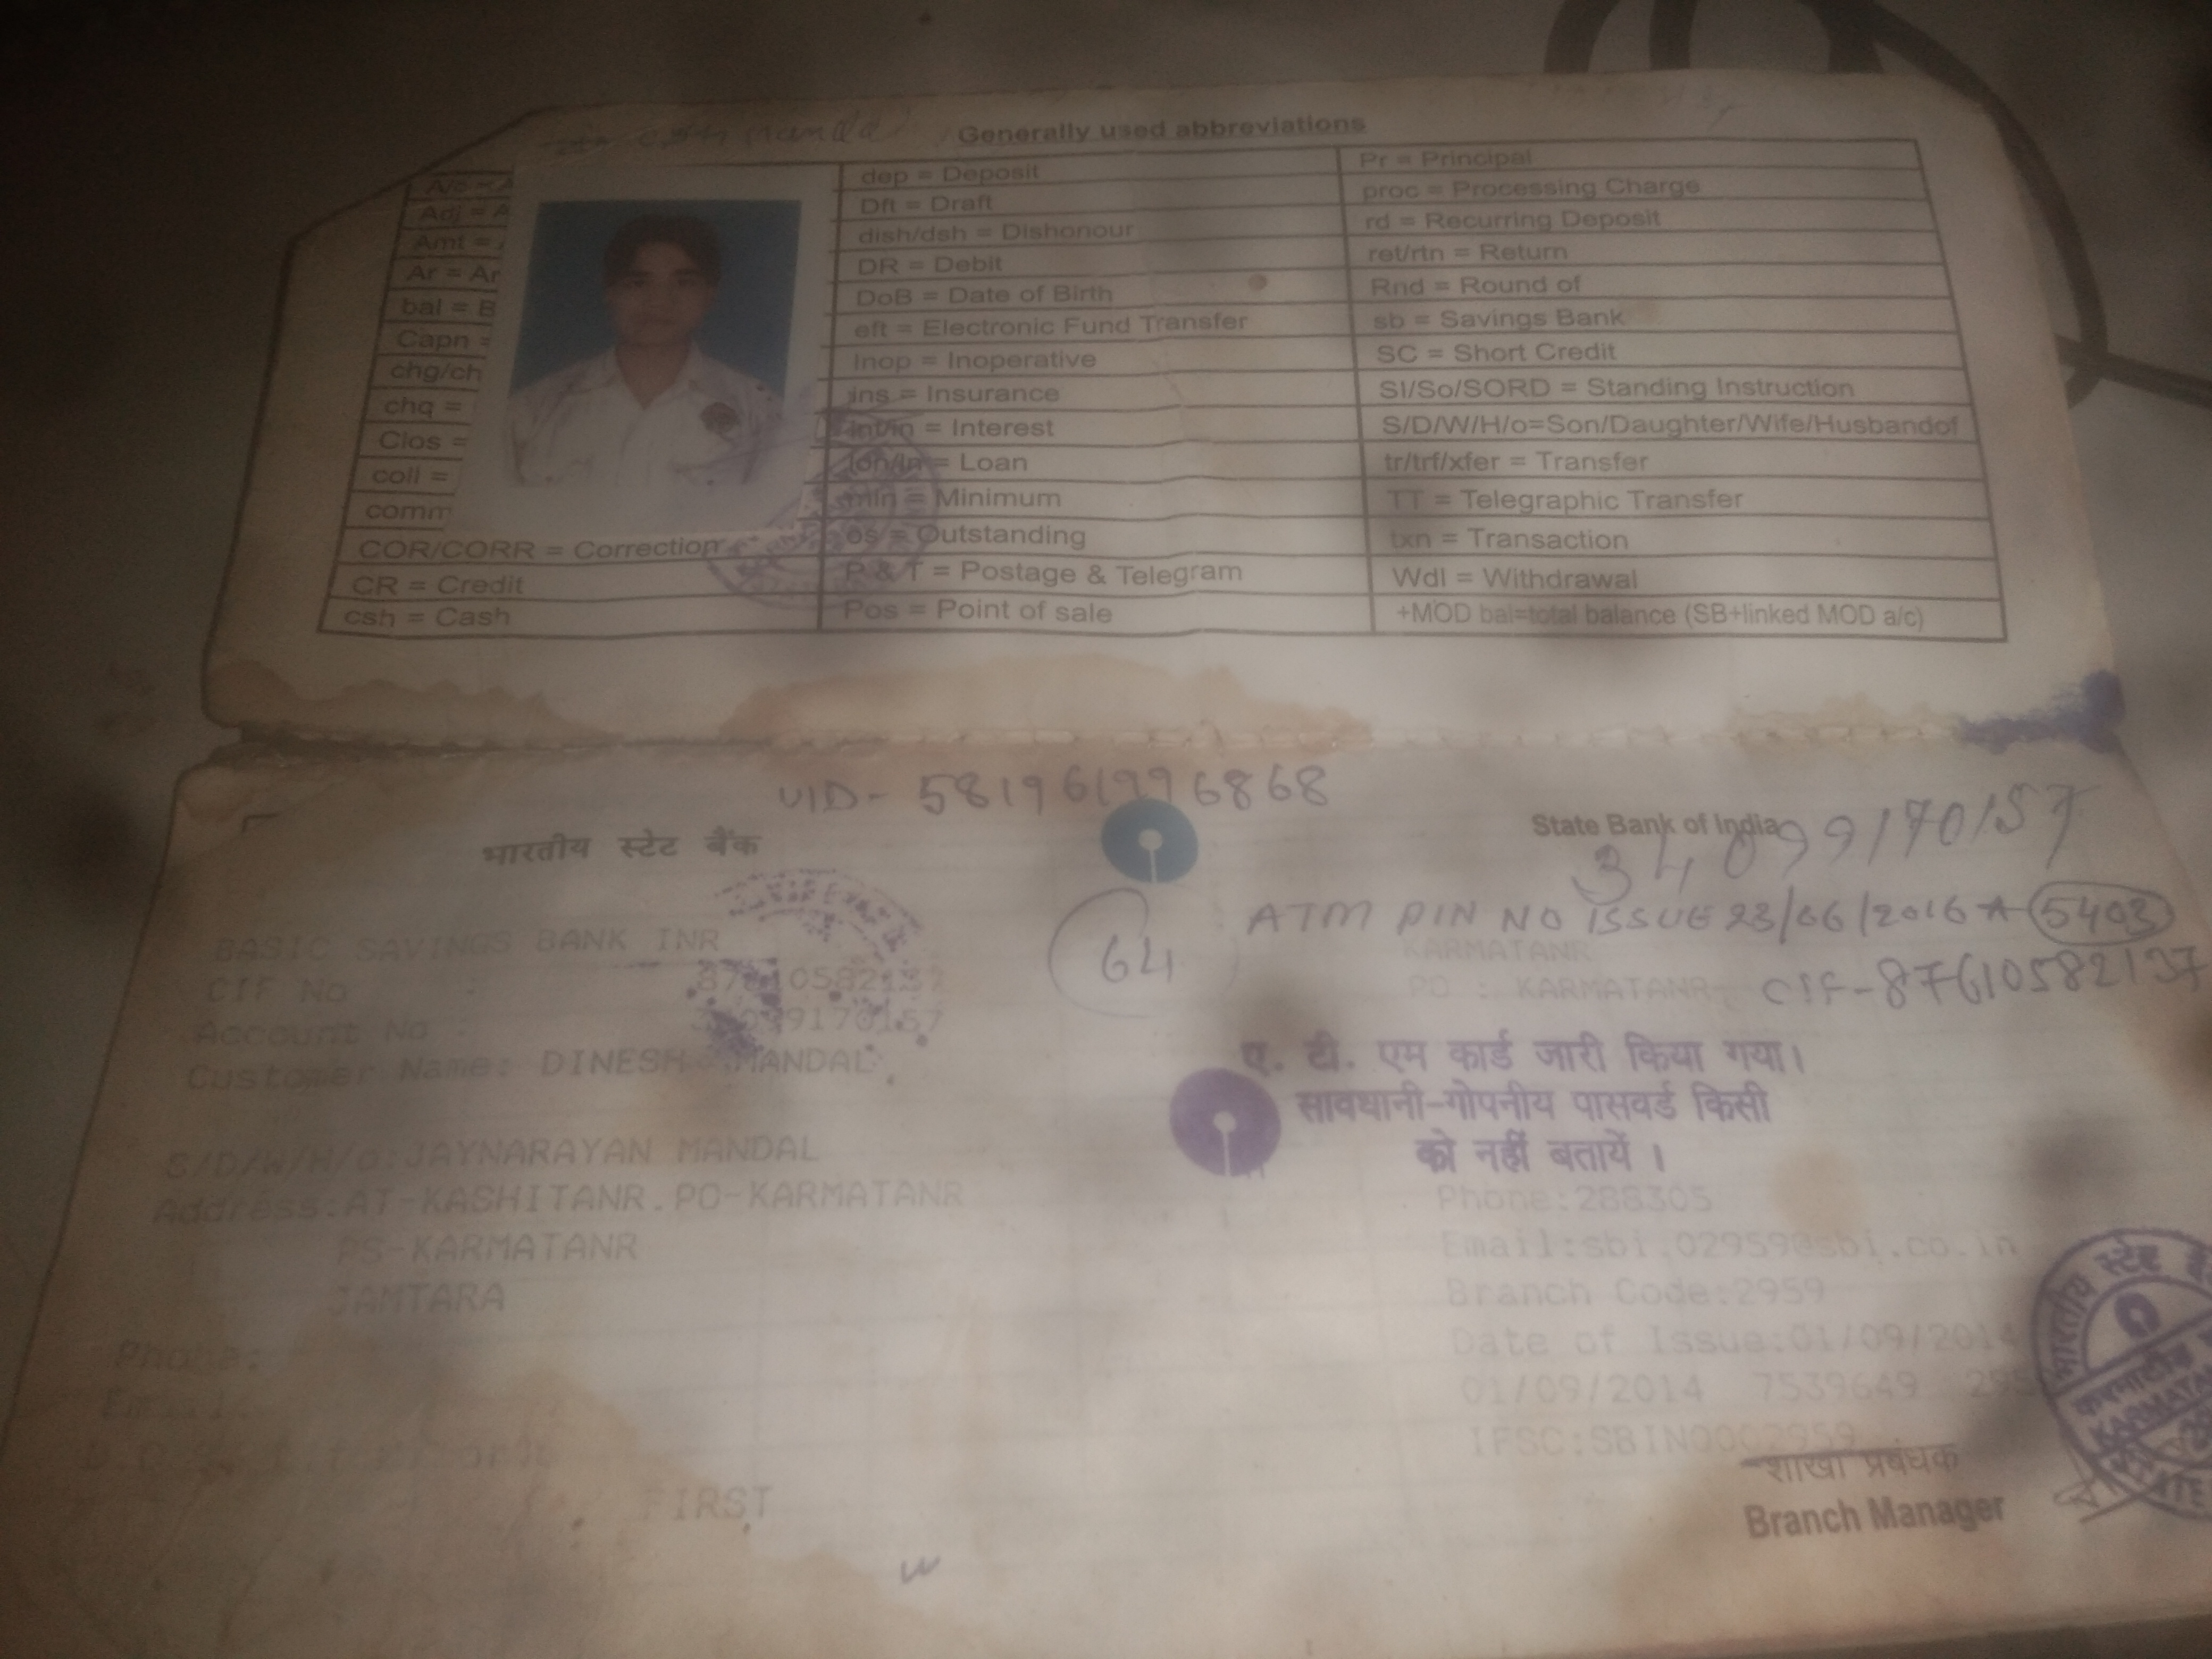 Generally used abbreviations
Adj =
Amt =
Ar = Ar
bal = B
Capn =
chg/ch
chq =
Clos =
coll =
comm
COR/CORR = Correction
CR = Credit
csh = Cash
dep = Deposit
Dft = Draft
dish/dsh = Dishonour
DR = Debit
DoB = Date of Birth
eft = Electronic Fund Transfer
Inop = Inoperative
ins = Insurance
int/in = Interest
lon/ln = Loan
min = Minimum
os = Outstanding
P & T = Postage & Telegram
Pos = Point of sale
Pr = Principal
proc = Processing Charge
rd = Recurring Deposit
ret/rtn = Return
Rnd = Round of
sb = Savings Bank
SC = Short Credit
SI/So/SORD = Standing Instruction
S/D/W/H/o=Son/Daughter/Wife/Husbandof
tr/trf/xfer = Transfer
TT = Telegraphic Transfer
txn = Transaction
Wdl = Withdrawal
+MOD bal=total balance (SB+linked MOD a/c)
UID- 581961996868
भारतीय स्टेट बैंक
State Bank of India
34099170157
64
ATM PIN NO ISSUE 23/06/2016 5403
CIF-87610582137
BASIC SAVINGS BANK INR
CIF No :
Account No :
Customer Name: DINESH MANDAL
S/D/W/H/o:JAYNARAYAN MANDAL
Address:AT-KASHITANR.PO-KARMATANR
PS-KARMATANR
JAMTARA
Phone:
Email:
FIRST
KARMATANR
PO : KARMATANR
ए. टी. एम कार्ड जारी किया गया।
सावधानी-गोपनीय पासवर्ड किसी
को नहीं बतायें ।
Phone:288305
Email:sbi.02959@sbi.co.in
Branch Code:2959
Date of Issue:01/09/2014
01/09/2014 7539649
IFSC:SBIN0002959
शाखा प्रबंधक
Branch Manager
भारतीय स्टेट